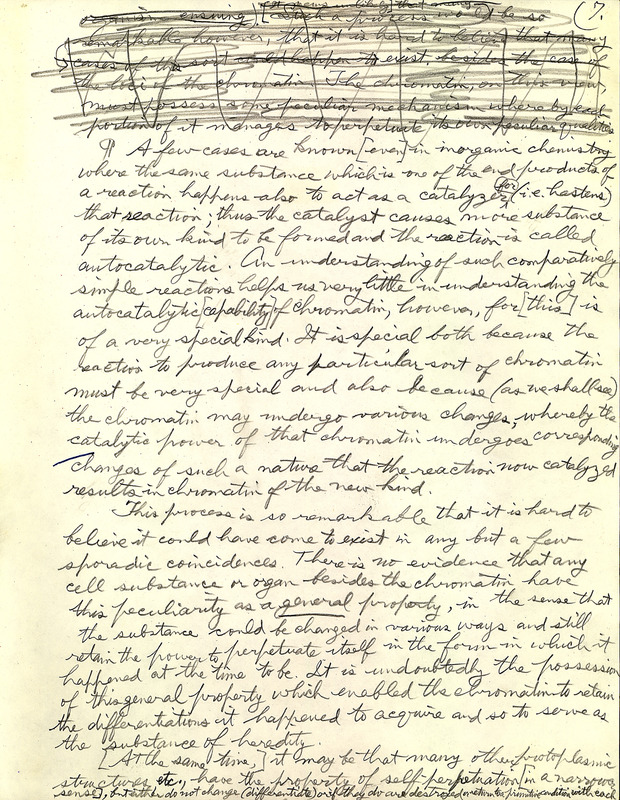 (7.
organism ensuing) [such a process would] be so
remarkable however, that it is hard to believe that many
cases of this sort could happen to exist, besides the case of
the loci of the chromatin. The chromatin, on this view,
must possess some peculiar mechanism whereby each
portion of it manages to perpetuate its own peculiar qualities
¶ A few cases are known [even] in inorganic chemistry
where the same substance which is one of the end products of
a reaction happens also to act as a catalyzer for (i.e. hastens)
that reaction; thus the catalyst causes more substance
of its own kind to be formed and the reaction is called
autocatalytic. An understanding of such comparatively
simple reactions helps us very little in understanding the
autocatalytic [capability] of chromatin, however, for [this] is
of a very special kind. It is special both because the
reaction to produce any particular sort of chromatin
must be very special and also because (as we shall see)
the chromatin may undergo various changes, whereby the
catalytic power of that chromatin undergoes corresponding
changes of such a nature that the reaction now catalyzed
results in chromatin of the new kind.
This process is so remarkable that it is hard to
believe it could have come to exist in any but a few
sporadic coincidences. There is no evidence that any
cell substance or organ besides the chromatin have
this peculiarity as a general property, in the sense that
the substance could be changed in various ways and still
retain the power to perpetuate itself in the form in which it
happened at the time to be. It is undoubtedly the possession
of this general property which enabled the chromatin to retain
the differentiations it happened to acquire and so to serve as
the substance of heredity.
[At the same time,] it may be that many other protoplasmic
structures, etc., have the property of self-perpetuation [in a narrower
sense], but either do not change (differentiate) or if they do are destroyed or return to primitive condition with each